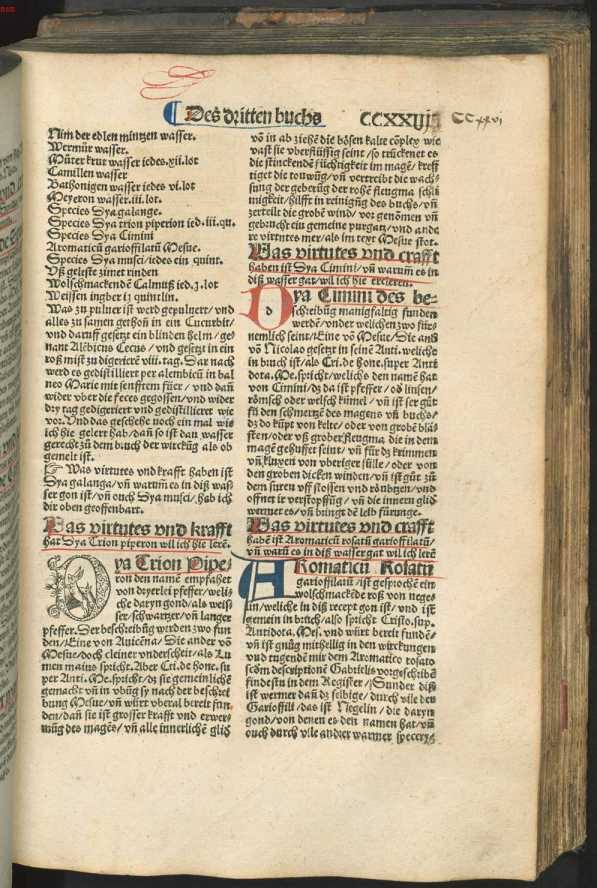 Des dritten buchs CCXXVII CCxxvi
Nim der edlen mintzen wasser.
Wermůt wasser.
Můter krut wasser iedes.xii.lot
Camillen wasser
Bathonigen wasser iedes vi.lot
Meyeron wasser.iii.lot.
Species Dya galange.
Species Dya trion piperion ied.iii.qu.
Species Dya Cimini
Aromaticū gariofilatū Mesue.
Species Dya musci/iedes ein quint.
Vß geleste zimet rinden
Wolschmackēde Calmuß ied.j.lot
Weissen ingber ij quintlin.
Was zu pulner ist werd gepulnert/vnd
alles zu samen gethon in ein Cucurbit/
vnd daruff gesetzt ein blinden helm/ge⸗
nant Alēbicus Cecus/vnd gesetzt in ein
roß mist zu digerierē viii.tag. Dar nach
werd es gedistilliert per alembicū in bal
neo Marie mit senfftem füer/vnd dañ
wider vber die feces gegossen/vnd wider
dry tag gedigeriert vnd gedistilliert wie
vor. Vnd das geschehe noch ein mal wie
ich hie gelert hab/dañ so ist dan wasser
gerecht zů dem bruch der wirckūg als ob
gemelt ist.
Was virtutes vnd krafft haben ist
Dya galanga/vñ warum es in diß was⸗
ser gon ist/vñ ouch Dya musci/hab ich
dir oben geoffenbart.
Was virtutes vnd krafft
hat Dya Trion piperon wil ich hie lerē.
Dya Trion Pipe⸗
ron den namē empfahet
von dryerlei pfeffer/weli⸗
che daryn gond/als weis⸗
ser/schwartzer/vñ langer
pfeffer. Der beschreibūg werden zwo fun
den/Eine von Auicēna/Die ander vō
Mesue/doch cleiner vnderscheit/als Lu
men maius spricht. Aber Cri.de hone.su
per Anti. Me.spricht/dz sie gemeinlichē
gemacht vñ in vbūg sy nach der beschrei
bung Mesue/vñ würt vberal bereit fun⸗
den/dañ sie ist grosser krafft vnd erwer⸗
mūg des magēs/vñ alle innerlichē glid
vō in ab ziehē die bösen kalte cōplex wie
vast sie vberflüssig seint/so trücknet es
die stinckendē füchtigkeit im magē/kreff
tiget die touwūg/vñ vertreibt die wach⸗
sung der geberūg der rohē fleugma schli
migkeit/hilfft in reinigūg des buchs/vñ
zerteilt die grobē wind/vor genōmen vñ
gebrucht ein gemeine purgatz/vnd ande
re virtutes mer/als im text Mesue stot.
Was virtutes vnd crafft
haben ist Dya Cimini/vñ warum̄ es in
diß wasser gat/wil ich hie ercleren.
Dya Cimini des be⸗
schreibūg manigfaltig funden
werdē/vnder welichen zwo für⸗
nemlich seint/Eine vō Mesue/Die and
vō Nicolao gesetzt in seinē Anti.weliche
in bruch ist/als Cri.de hone.super Anti
dota.Me.spricht/welichs den namē hat
von Cimini/dz da ist pfeffer/od linsen/
römsch oder welsch kümel/vñ ist ser gůt
für den schmertzē des magens vñ buchs/
dz do kūpt von kelte/oder von grobē blä⸗
sten/oder vß grober fleugma die in dem
magē gehuffet seint/vñ für dz krimmen
vñ kluxen von vberiger fülle/oder von
den groben dicken winden/vñ ist gůt zů
dem suren vff stossen vnd röubtzen/vnd
offnet ir verstopffūg/vñ die innern glid
wermet es/vñ bringt dē leib fürunge.
Was virtutes vnd crafft
habē ist Aromaticū rosatū gariofilatū/
vñ warū es in diß wasser gat wil ich lerē
ARomaticū Rosatū
gariofilatū/ist gesprochē ein
wolschmackēde roß von nege⸗
lin/weliche in diß recept gon ist/vnd ist
gemein in bruch/als spricht Cristo.sup.
Antidota.Mes.vnd würt bereit fundē/
vñ ist gnůg mithellig in den wirckungen
vnd tugendē mit dem Aromatico rosato
scdm descriptionē Gabrielis vorgeschribē
findestu in dem Register/Sunder diß
ist wermer dañ dz selbige/durch vile den
Gariofili/das ist Negelin/die daryn
gond/von denen es den namen hat/vñ
ouch durch vile andrer warmer specery⸗